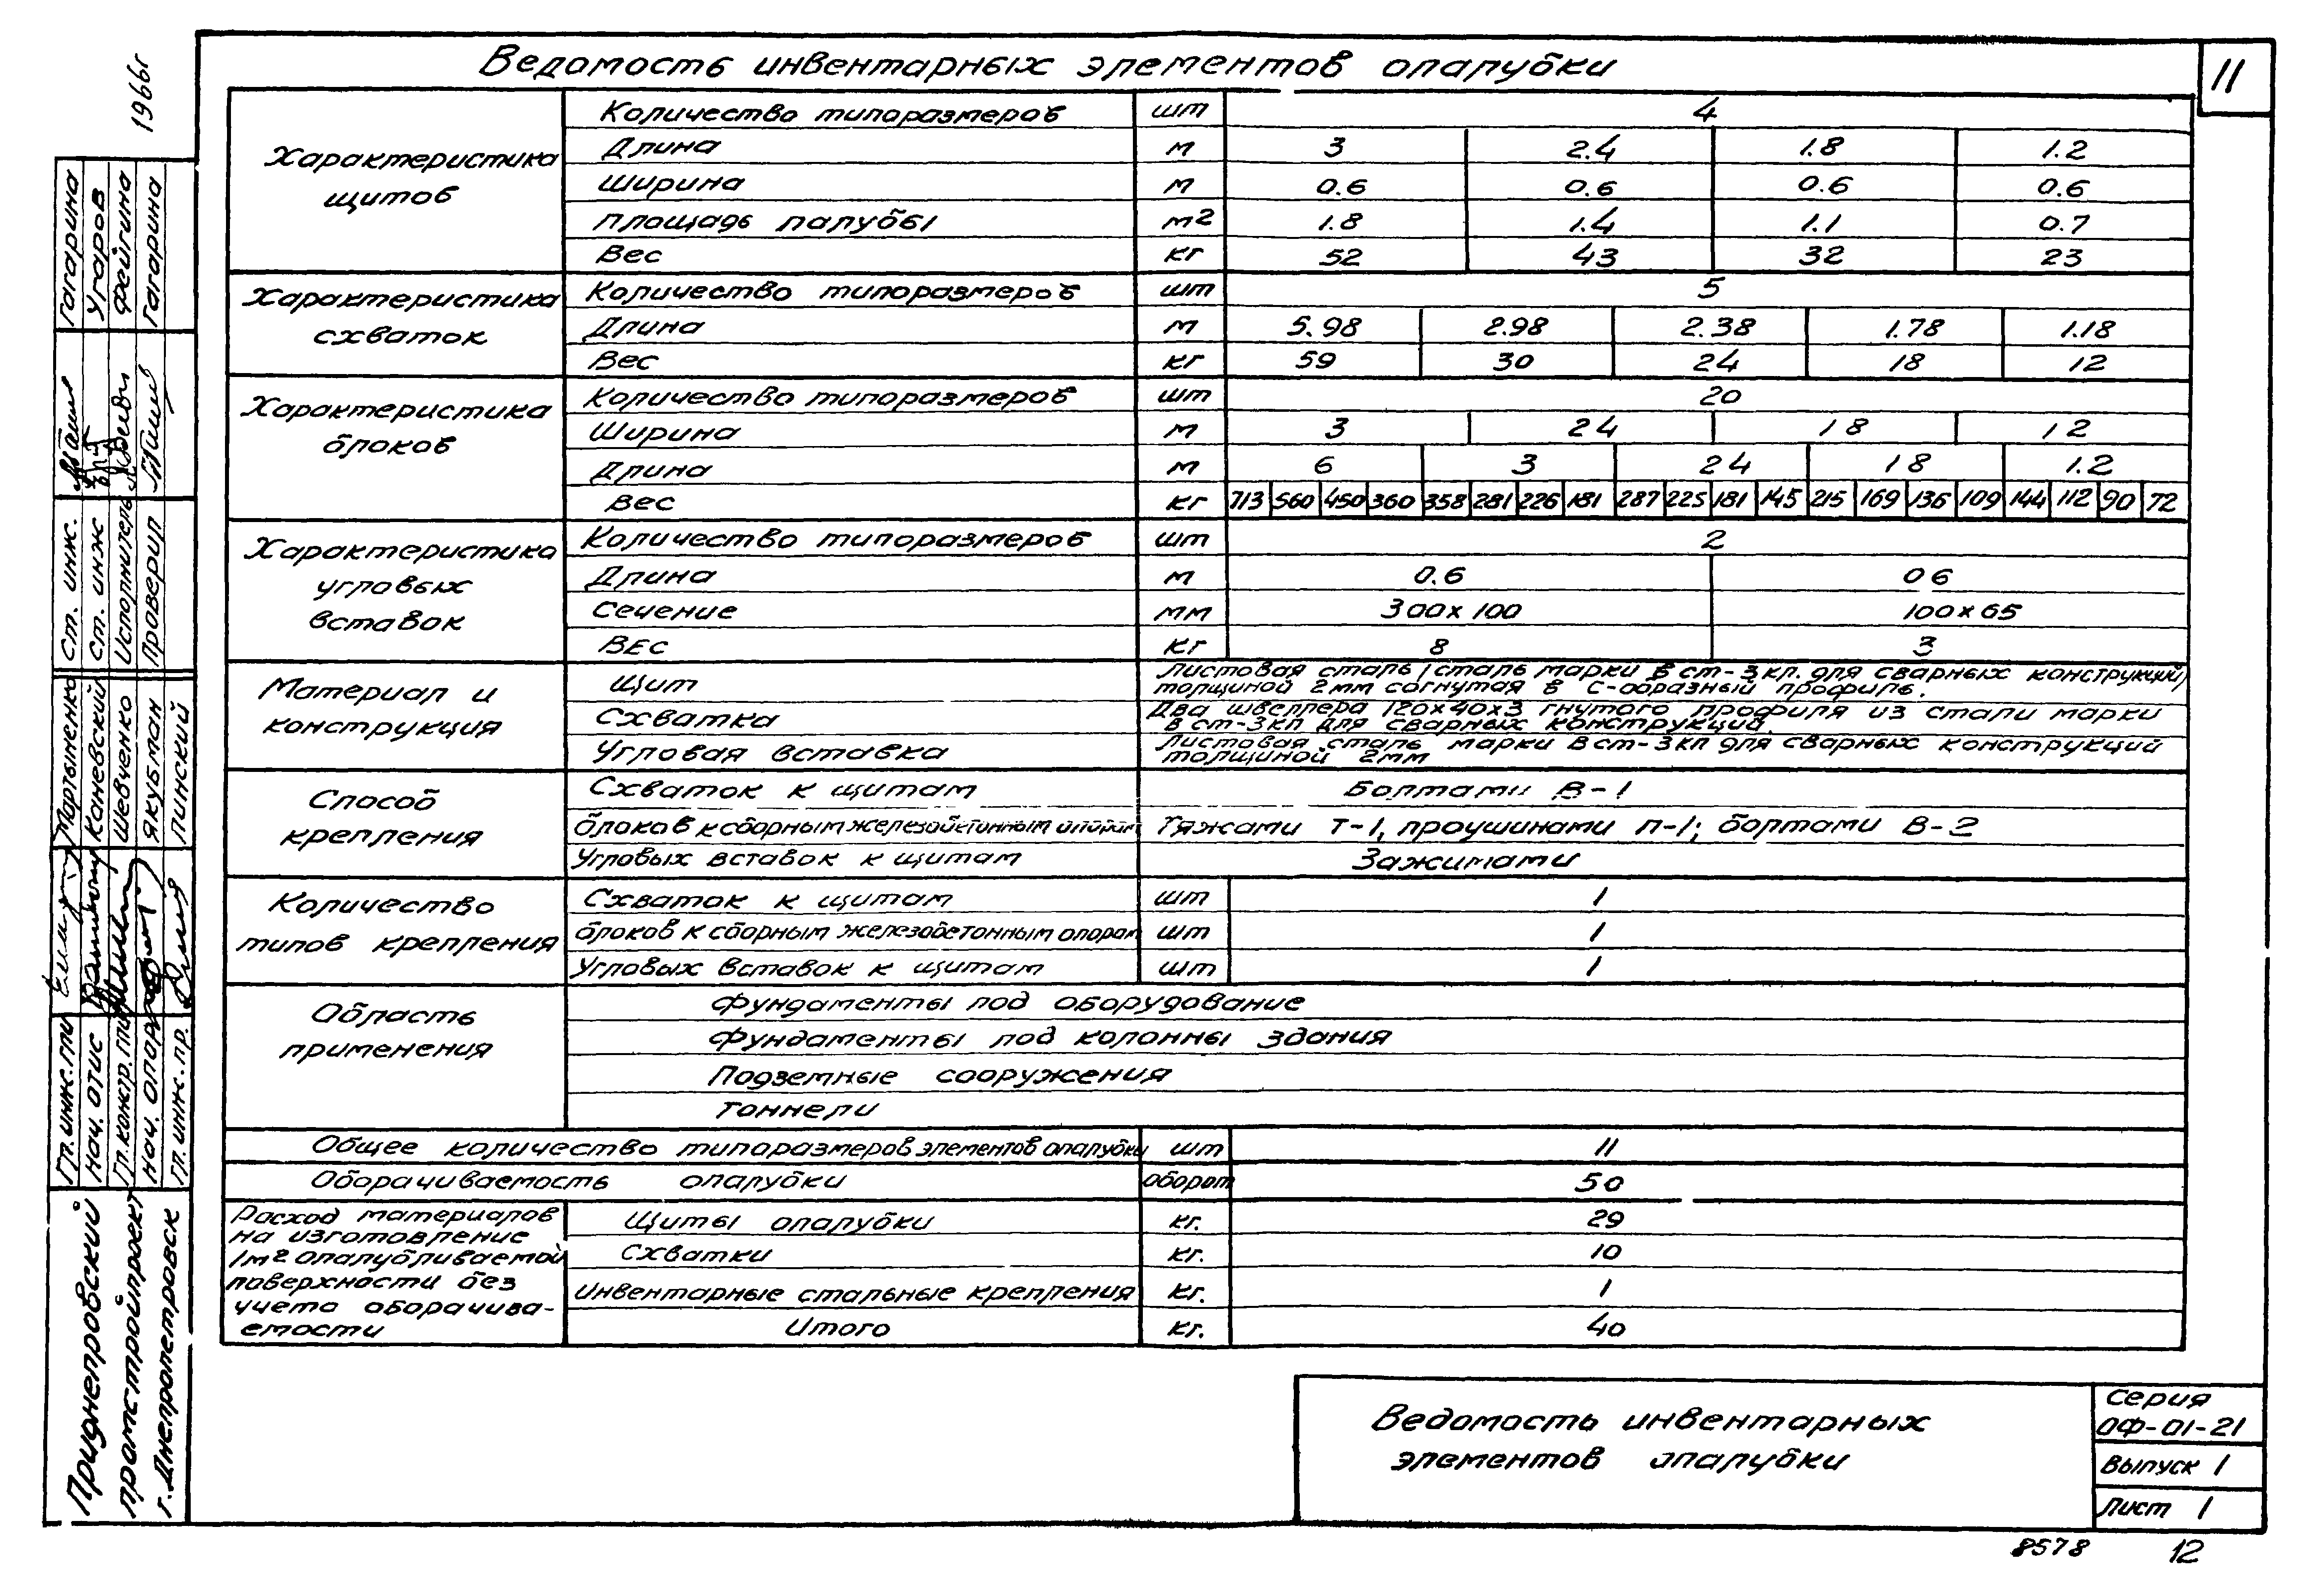 Ведомость инвентарных элементов опалубки
11
1966г
Характеристика щитов
Количество типоразмеров шт 4
Длина м 3 2.4 1.8 1.2
Ширина м 0.6 0.6 0.6 0.6
Площадь палубы м2 1.8 1.4 1.1 0.7
Вес кг 52 43 32 23
Характеристика схваток
Количество типоразмеров шт 5
Длина м 5.98 2.98 2.38 1.78 1.18
Вес кг 59 30 24 18 12
Характеристика блоков
Количество типоразмеров шт 20
Ширина м 3 24 18 12
Длина м 6 3 24 18 1.2
Вес кг 713 560 450 360 358 281 226 181 287 225 181 145 215 169 136 109 144 112 90 72
Характеристика угловых вставок
Количество типоразмеров шт 2
Длина м 0.6 06
Сечение мм 300х100 100х65
Вес кг 8 3
Материал и конструкция
Щит Листовая сталь (сталь марки В ст-3кп. для сварных конструкций)
толщиной 2мм согнутая в С-образный профиль.
Схватка Два швеллера 120х40х3 гнутого профиля из стали марки
В ст-3кп для сварных конструкций.
Угловая вставка Листовая сталь марки В ст-3кп для сварных конструкций
толщиной 2мм
Способ крепления
Схваток к щитам Болтами В-1
Блоков к сборным железобетонным опорам Тяжами Т-1, проушинами П-1; болтами В-2
Угловых вставок к щитам Зажимами
Количество типов крепления
Схваток к щитам шт 1
Блоков к сборным железобетонным опорам шт 1
Угловых вставок к щитам шт 1
Область применения
Фундаменты под оборудование
Фундаменты под колонны здания
Подземные сооружения
Тоннели
Общее количество типоразмеров элементов опалубки шт 11
Оборачиваемость опалубки оборот 50
Расход материалов
на изготовление
1м2 опалубливаемой
поверхности без
учета оборачива-
емости
Щиты опалубки кг. 29
Схватки кг. 10
Инвентарные стальные крепления кг. 1
Итого кг. 40
Ведомость инвентарных
элементов опалубки
Серия
ОФ-01-21
Выпуск 1
Лист 1
8578 12
Приднепровский
промстройпроект
г. Днепропетровск
Гл. инж. пр. Пинский
Якубман
Шевченко
Нач. ОТИС Каневский
Мартыненко
Ст. инж. Гагарина
Ст. инж Угаров
Исполнитель Фейгина
Проверил Гагарина